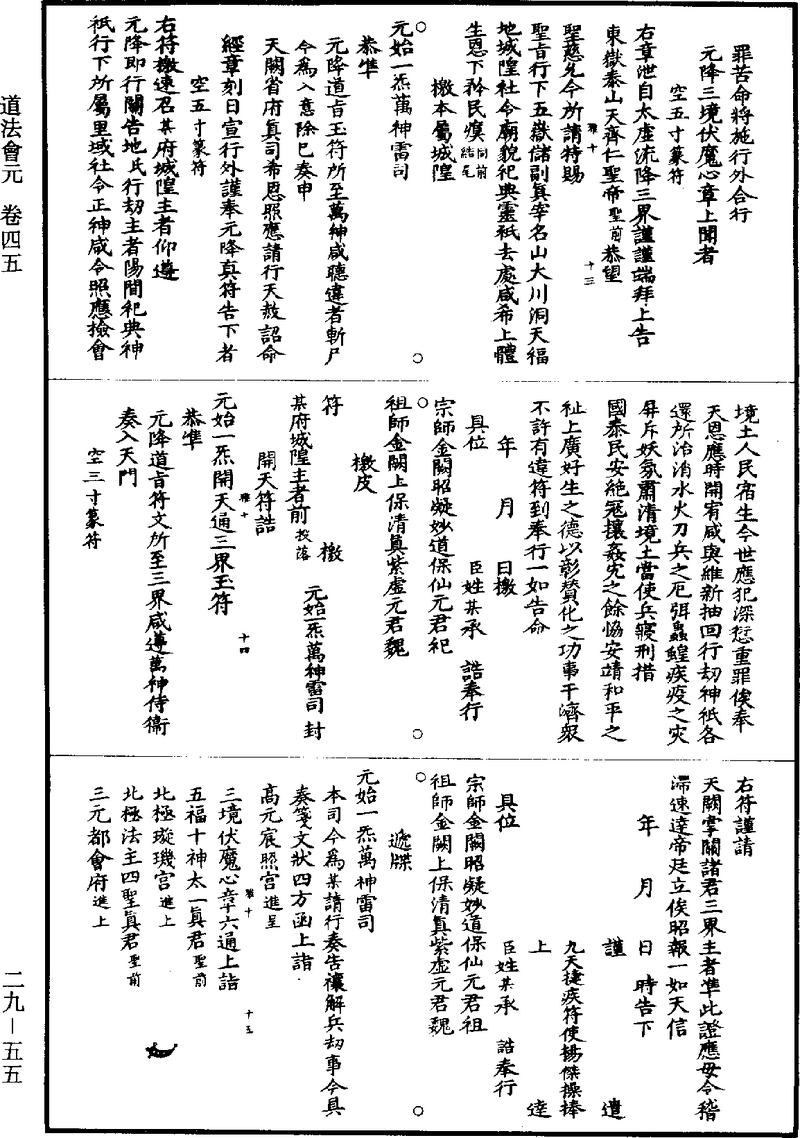 道法會元　卷四五
二九－五五
罪苦命將施行外合行
元降三境伏魔心章上聞者
空五寸篆符
右章泄自太虛流降三界謹謹端拜上告
東嶽泰山天齊仁聖帝聖前恭望
聖慈允今所請特賜
聖旨行下五嶽儲副眞宰名山大川洞天福
地城隍社令廟貌祀典靈祇去處咸希上體
生恩下矜民瘼同前結尾
檄本屬城隍
元始一炁萬神雷司
恭準
元降道旨玉符所至萬神咸聽違者斬尸
今為入意除已奏申
天闕省府眞司希恩照應請行天赦詔命
經章刻日宣行外謹奉元降真符告下者
空五寸篆符
右符檄速召某府城隍主者仰遵
元降即行關告地氏行劫主者陽間祀典神
祇行下所屬里域社令正神咸令照應檢會
境土人民宿生今世應犯深愆重罪俟奉
天恩應時開宥咸與維新抽回行劫神祇各
還所治消水火刀兵之厄弭蟲蝗疾疫之灾
屏斥妖氛肅清境土當使兵寢刑措
國泰民安絶冦攘姦宄之餘恊安靖和平之
祉上廣好生之德以彰贊化之功事干濟衆
不許有違符到奉行一如告命
年　月　日檄
具位　臣姓某承　誥奉行
宗師金闕昭凝妙道保仙元君祀
祖師金闕上保清眞紫虛元君魏
檄皮
符　檄　元始一炁萬神雷司　封
某府城隍主者前　投落
開天符誥
元始一炁開天通三界玉符
恭準
元降道旨符文所至三界咸遵萬神侍衞
奏入天門
空三寸篆符
右符謹請
天闕掌關諸君三界主者準此證應毋令稽
滯速達帝廷立俟昭報一如天信
年　月　日　時告下
謹　遣
九天捷疾符使楊傑操捧
上　達
具位　臣姓某承　誥奉行
宗師金闕昭凝妙道保仙元君祖
祖師金闕上保清眞紫虛元君魏
遞牒
元始一炁萬神雷司
本司今為某請行奏告禳解兵劫事今具
奏箋文狀四方函上詣
高元宸照宫進呈
三境伏魔心章六通上詣
五福十神太一眞君聖前
北極璇璣宫進上
北極法主四聖眞君聖前
三元都會府進上